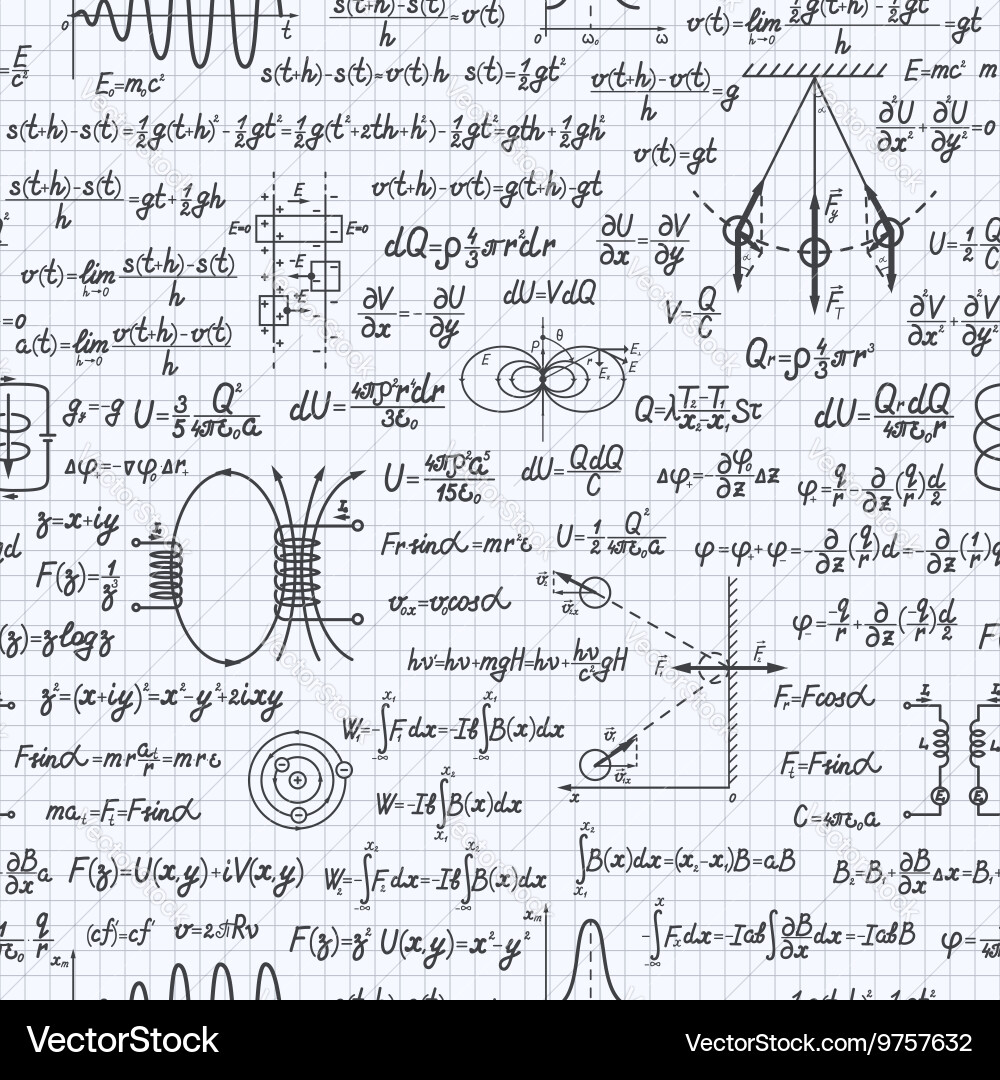 s(t+h)-s(t)/h ≈ v(t)
v(t)=lim h→0 ½g(t+h)²-½gt²/h =gt
0 t
0 ω₀ ω
=E/c²
E₀=m₀c²
s(t+h)-s(t)≈v(t)·h s(t)=½gt²
v(t+h)-v(t)/h =g
E=mc² m
s(t+h)-s(t)=½g(t+h)²-½gt²=½g(t²+2th+h²)-½gt²=gth+½gh²
∂²U/∂x²+∂²U/∂y²=0
v(t)=gt
s(t+h)-s(t)/h =gt+½gh
E
E=0 E=0
-E
+E
v(t+h)-v(t)=g(t+h)-gt
α
F⃗y
α α
F⃗T
dQ=ρ4/3πr²dr
∂U/∂x=∂V/∂y
U=½Q/C
v(t)=lim h→0 s(t+h)-s(t)/h
∂V/∂x=-∂U/∂y
dU=VdQ
V=Q/C
∂²V/∂x²+∂²V/∂y²
=0
a(t)=lim h→0 v(t+h)-v(t)/h
E P θ r E
Qr=ρ4/3πr³
gy=-g U=3/5 Q²/4πε₀a
dU=4πρ²r⁴dr/3ε₀
Q=λ T₂-T₁/x₂-x₁ Sτ
dU=QrdQ/4πε₀r
Δφ₊=-∇φ₀·Δr₊
U=4πρ²a⁵/15ε₀
dU=QdQ/C
Δφ₊=-∂φ₀/∂z Δz
φ₊=q/r-∂/∂z(q/r)d/2
z=x+iy
F(z)=1/z³
Frsinα=mr²ε
U=½ Q²/4πε₀a
φ=φ₊+φ₋=-∂/∂z(q/r)d=-∂/∂z(1/r)q
v₀x=v₀cosα
φ₋=-q/r+∂/∂z(-q/r)d/2
(z)=zlogz
hν'=hν+mgH=hν+hν/c²gH
F⃗₁ F⃗₂
z²=(x+iy)²=x²-y²+2ixy
Fr=Fcosα
W₁=-∫-∞ x₁ F₁dx=-Ib∫-∞ x₁ B(x)dx
Fsinα=mr at/r=mrε
Ft=Fsinα
x 0
W=-Ib∫x₁ x₂ B(x)dx
mat=Ft=Fsinα
C=4πε₀a
∂B/∂x a F(z)=U(x,y)+iV(x,y)
W₂=-∫-∞ x₂ F₂dx=-Ib∫-∞ x₂ B(x)dx
∫x₁ x₂ B(x)dx=(x₂-x₁)B=aB
B₂=B₁+∂B/∂x Δx=B₁+
q/r (cf)'=cf' v=2πRν
F(z)=z² U(x,y)=x²-y²
-∫-∞ x Fxdx=-Iab∫∂B/∂x dx=-IabB
φ=
xm xm
VectorStock
VectorStock.com/9757632